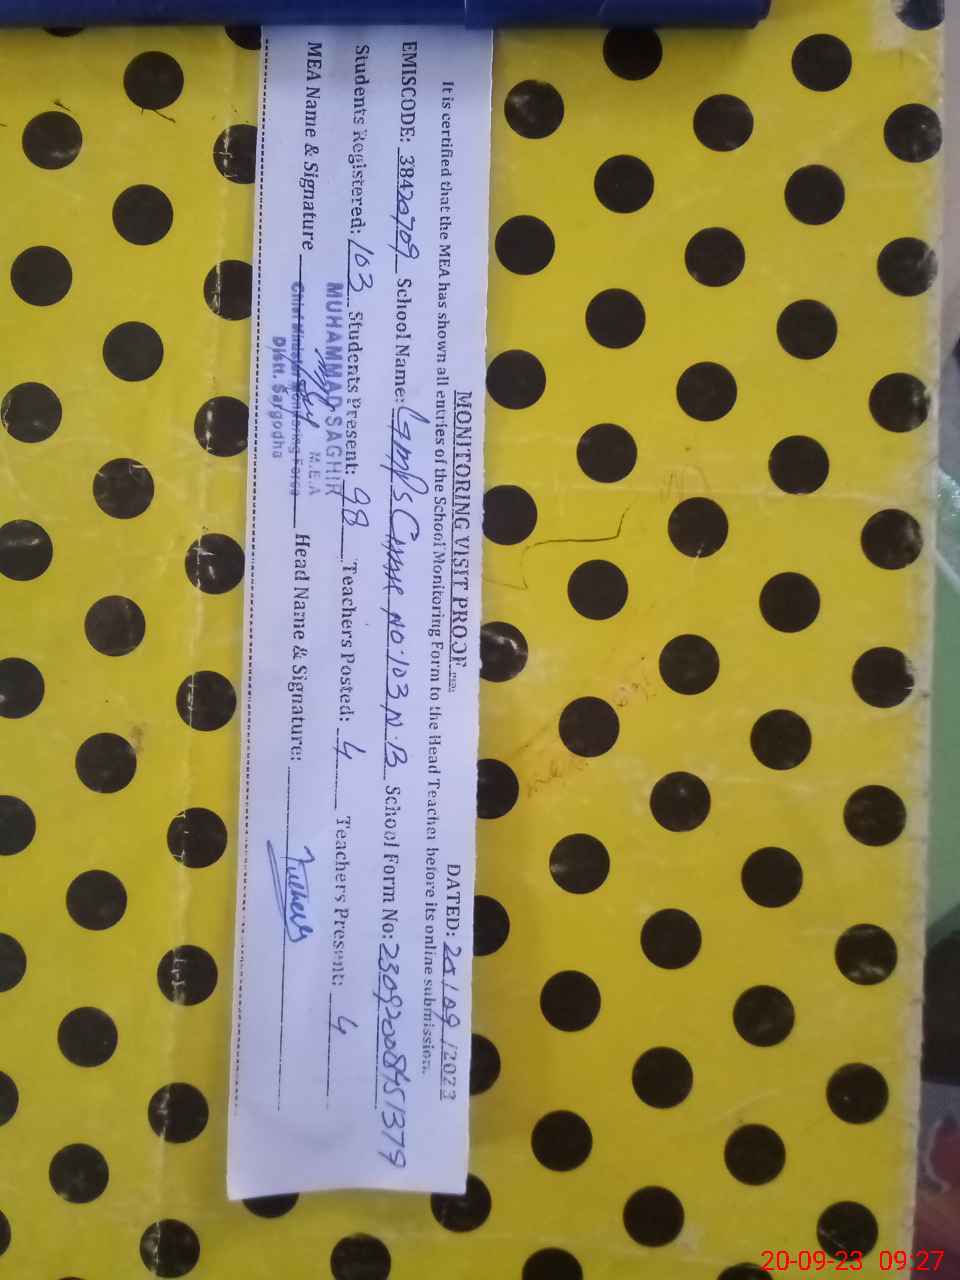 MONITORING VISIT PROOF DATED: 20/09/2023
It is certified that the MEA has shown all entries of the School Monitoring Form to the Head Teacher before its online submission.
EMISCODE: 38420709 School Name: GMPS NO.103 N.B School Form No:
Students Registered: 103 Students Present: 98 Teachers Posted: 4 Teachers Present: 4
MUHAMMAD SAGHIR
M.E.A
MEA Name & Signature Head Name & Signature:
Chief Minister Monitoring Force
Distt. Sargodha
20-09-23 09:27